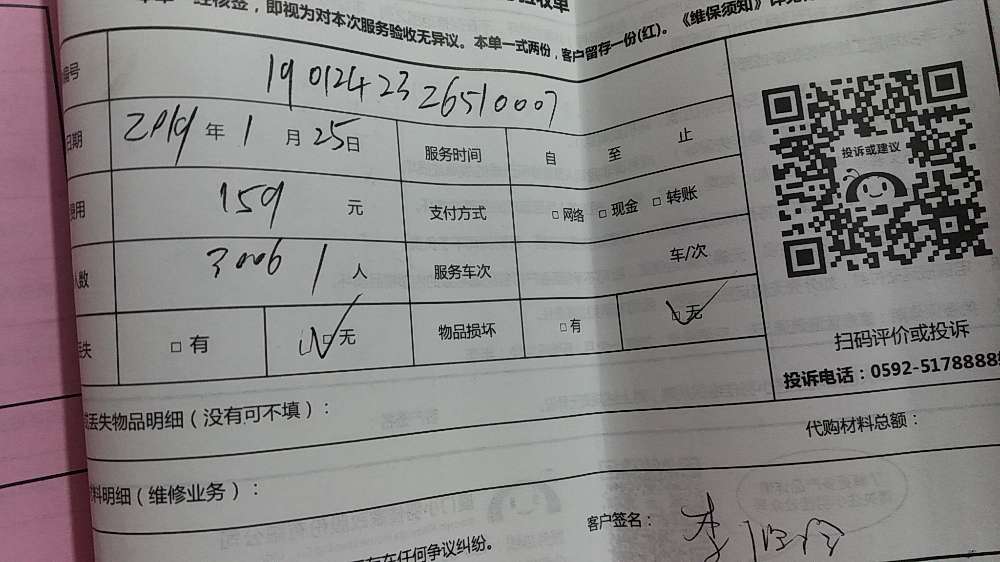 验收单
核签，即视为对本次服务验收无异议。本单一式两份，客户留存一份(红)。《维保须知》详见
编号 1901242326510007
日期 2019年1月25日 服务时间 自 至 止
费用 159 元 支付方式 □网络 □现金 □转账
人数 3006 1 人 服务车次 车/次
丢失 □有 □无 物品损坏 □有 □无
投诉或建议
扫码评价或投诉
投诉电话：0592-5178888
丢失物品明细（没有可不填）：
代购材料总额：
料明细（维修业务）：
客户签名：李
存在任何争议纠纷。